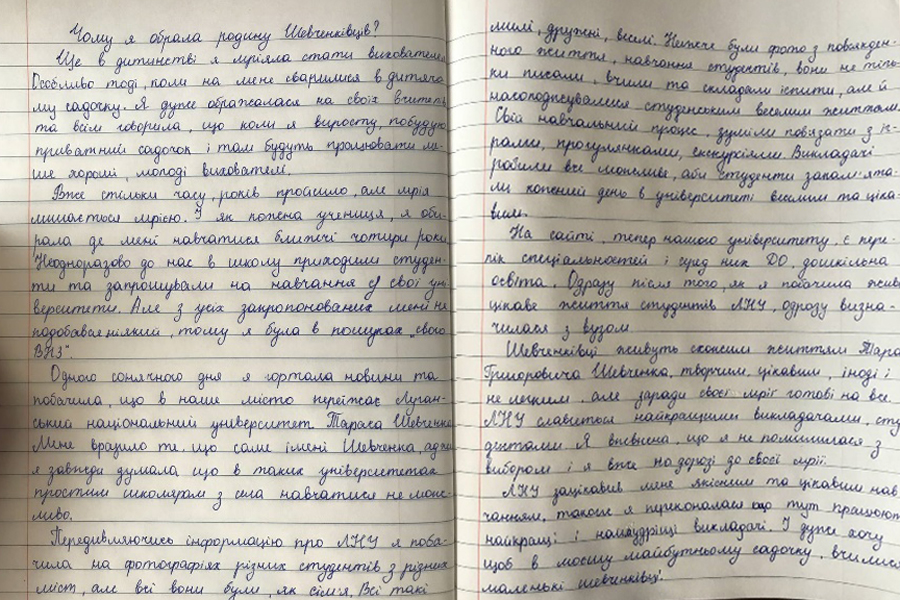 Чому я обрала родину Шевченківців?
Ще в дитинстві я мріяла стати вихователем
Особливо тоді, коли на мене сварилися в дитячо-
му садочку. Я дуже ображалася на своїх вчителів
та всім говорила, що коли я виросту, побудую
приватний садочок і там будуть працювати ли-
ше хороші, молоді вихователі.
Вже стільки часу, років пройшло, але мрія
лишається мрією. І як кожна учениця, я оби-
рала де мені навчатися ближчі чотири роки.
Неодноразово до нас в школу приходили студен-
ти та запрошували на навчання у свої уні-
верситети. Але з усіх запропонованих мені не
подобався ніякий, тому я була в пошуках „свого
ВНЗ".
Одного сонячного дня я гортала новини та
побачила, що в наше місто переїжає Луган-
ський національний університет Тараса Шевченка
Мене вразило те, що саме імені Шевченка, адже
я завжди думала що в таких університетах
простим школярам з села навчатися не мож-
ливо.
Передивляючись інформацію про ЛНУ я поба-
чила на фотографіях різних студентів з різних
міст, але всі вони були, як сім'я, Всі такі
милі, дружні, веселі. Нижче були фото з повсякден-
ного життя, навчання студентів, вони не тіль-
ки писали, вчили та складали іспити, але й
насолоджувалися студенським веселим життям.
Свій навчальний процес, зуміли пов'язати з іг-
рами, прогулянками, екскурсіями. Викладачі
робили все можливе, аби студенти запам'ята-
ли кожний день в університеті веселим та ціка-
вим.
На сайті, тепер нашого університету, є пере-
лік спеціальностей і серед них ДО, дошкільна
освіта. Одразу після того, як я побачила живе
цікаве життя студентів ЛНУ, одразу визна-
чилася з вузом.
Шевченківці живуть схожим життям Тараса
Григоровича Шевченка, творчим, цікавим, іноді і
не легким, але заради своєї мрії готові на все.
ЛНУ славиться найкращими викладачами, сту-
дентами. Я впевнена, що я не помилилася з
вибором і я вже на дорозі до своєї мрії.
ЛНУ зацікавив мене якісним та цікавим нав-
чанням, також я переконалась що тут працюють
найкращі і наймудріші викладачі. І дуже хочу
щоб в моєму майбутньому садочку, вчилися
маленькі шевченківці.